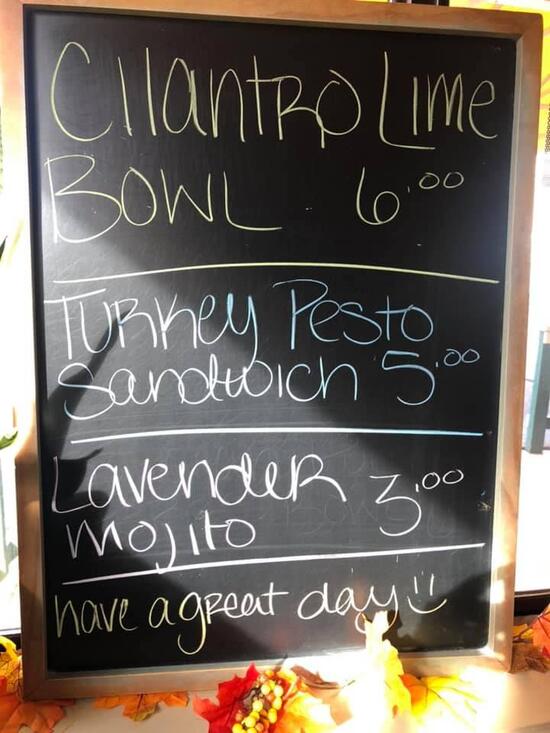 Cilantro Lime
Bowl 6.00
Turkey Pesto
Sandwich 5.00
Lavender
mojito 3.00
have a great day